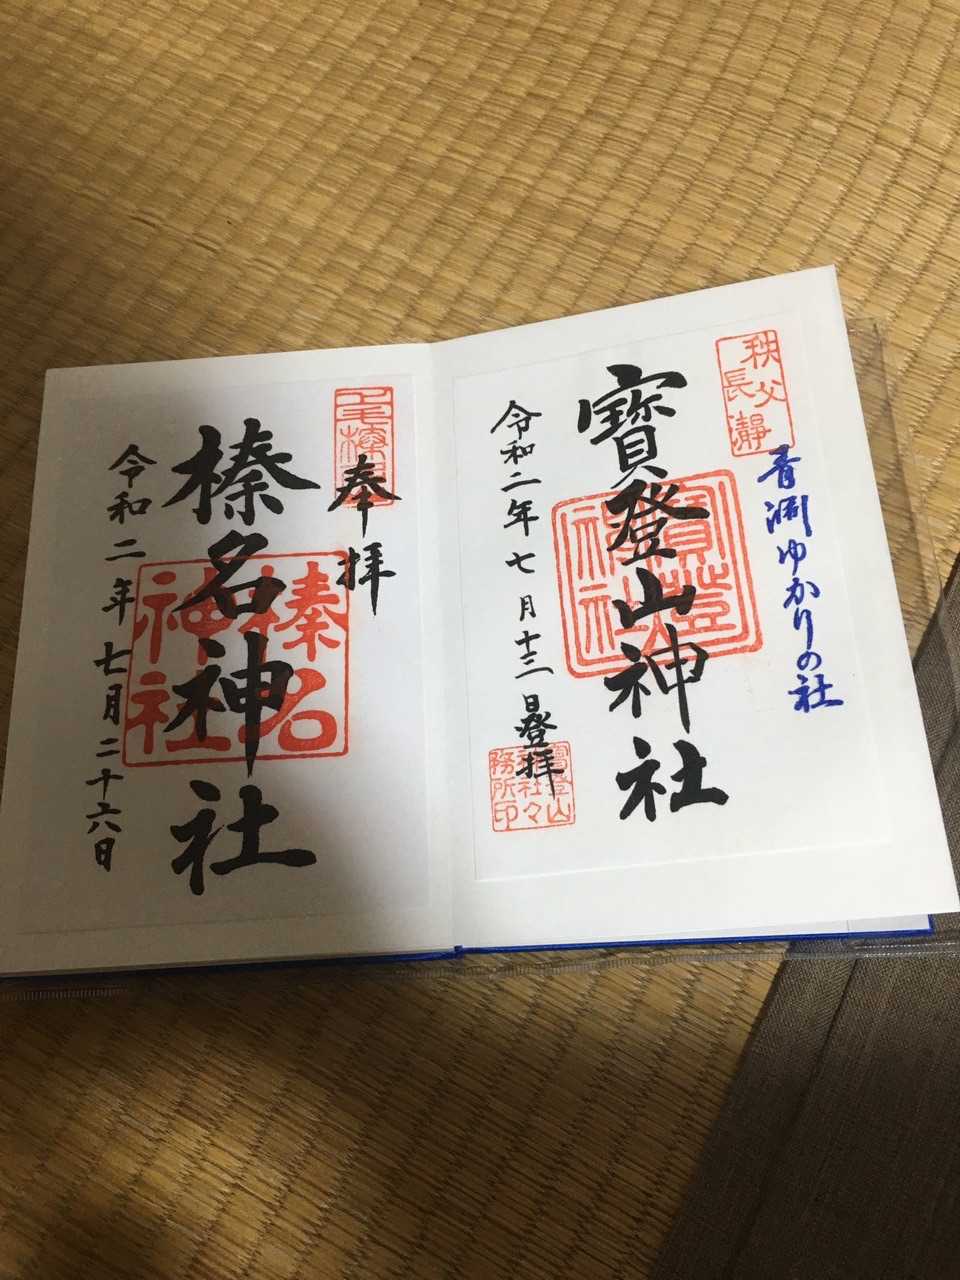 秩父
長瀞
青淵ゆかりの社
寳登山神社
寳登
山
神社
令和二年七月十三日登拝
寳登山
神社々
務所印
奉拝
榛名神社
榛名
神社
令和二年七月二十六日